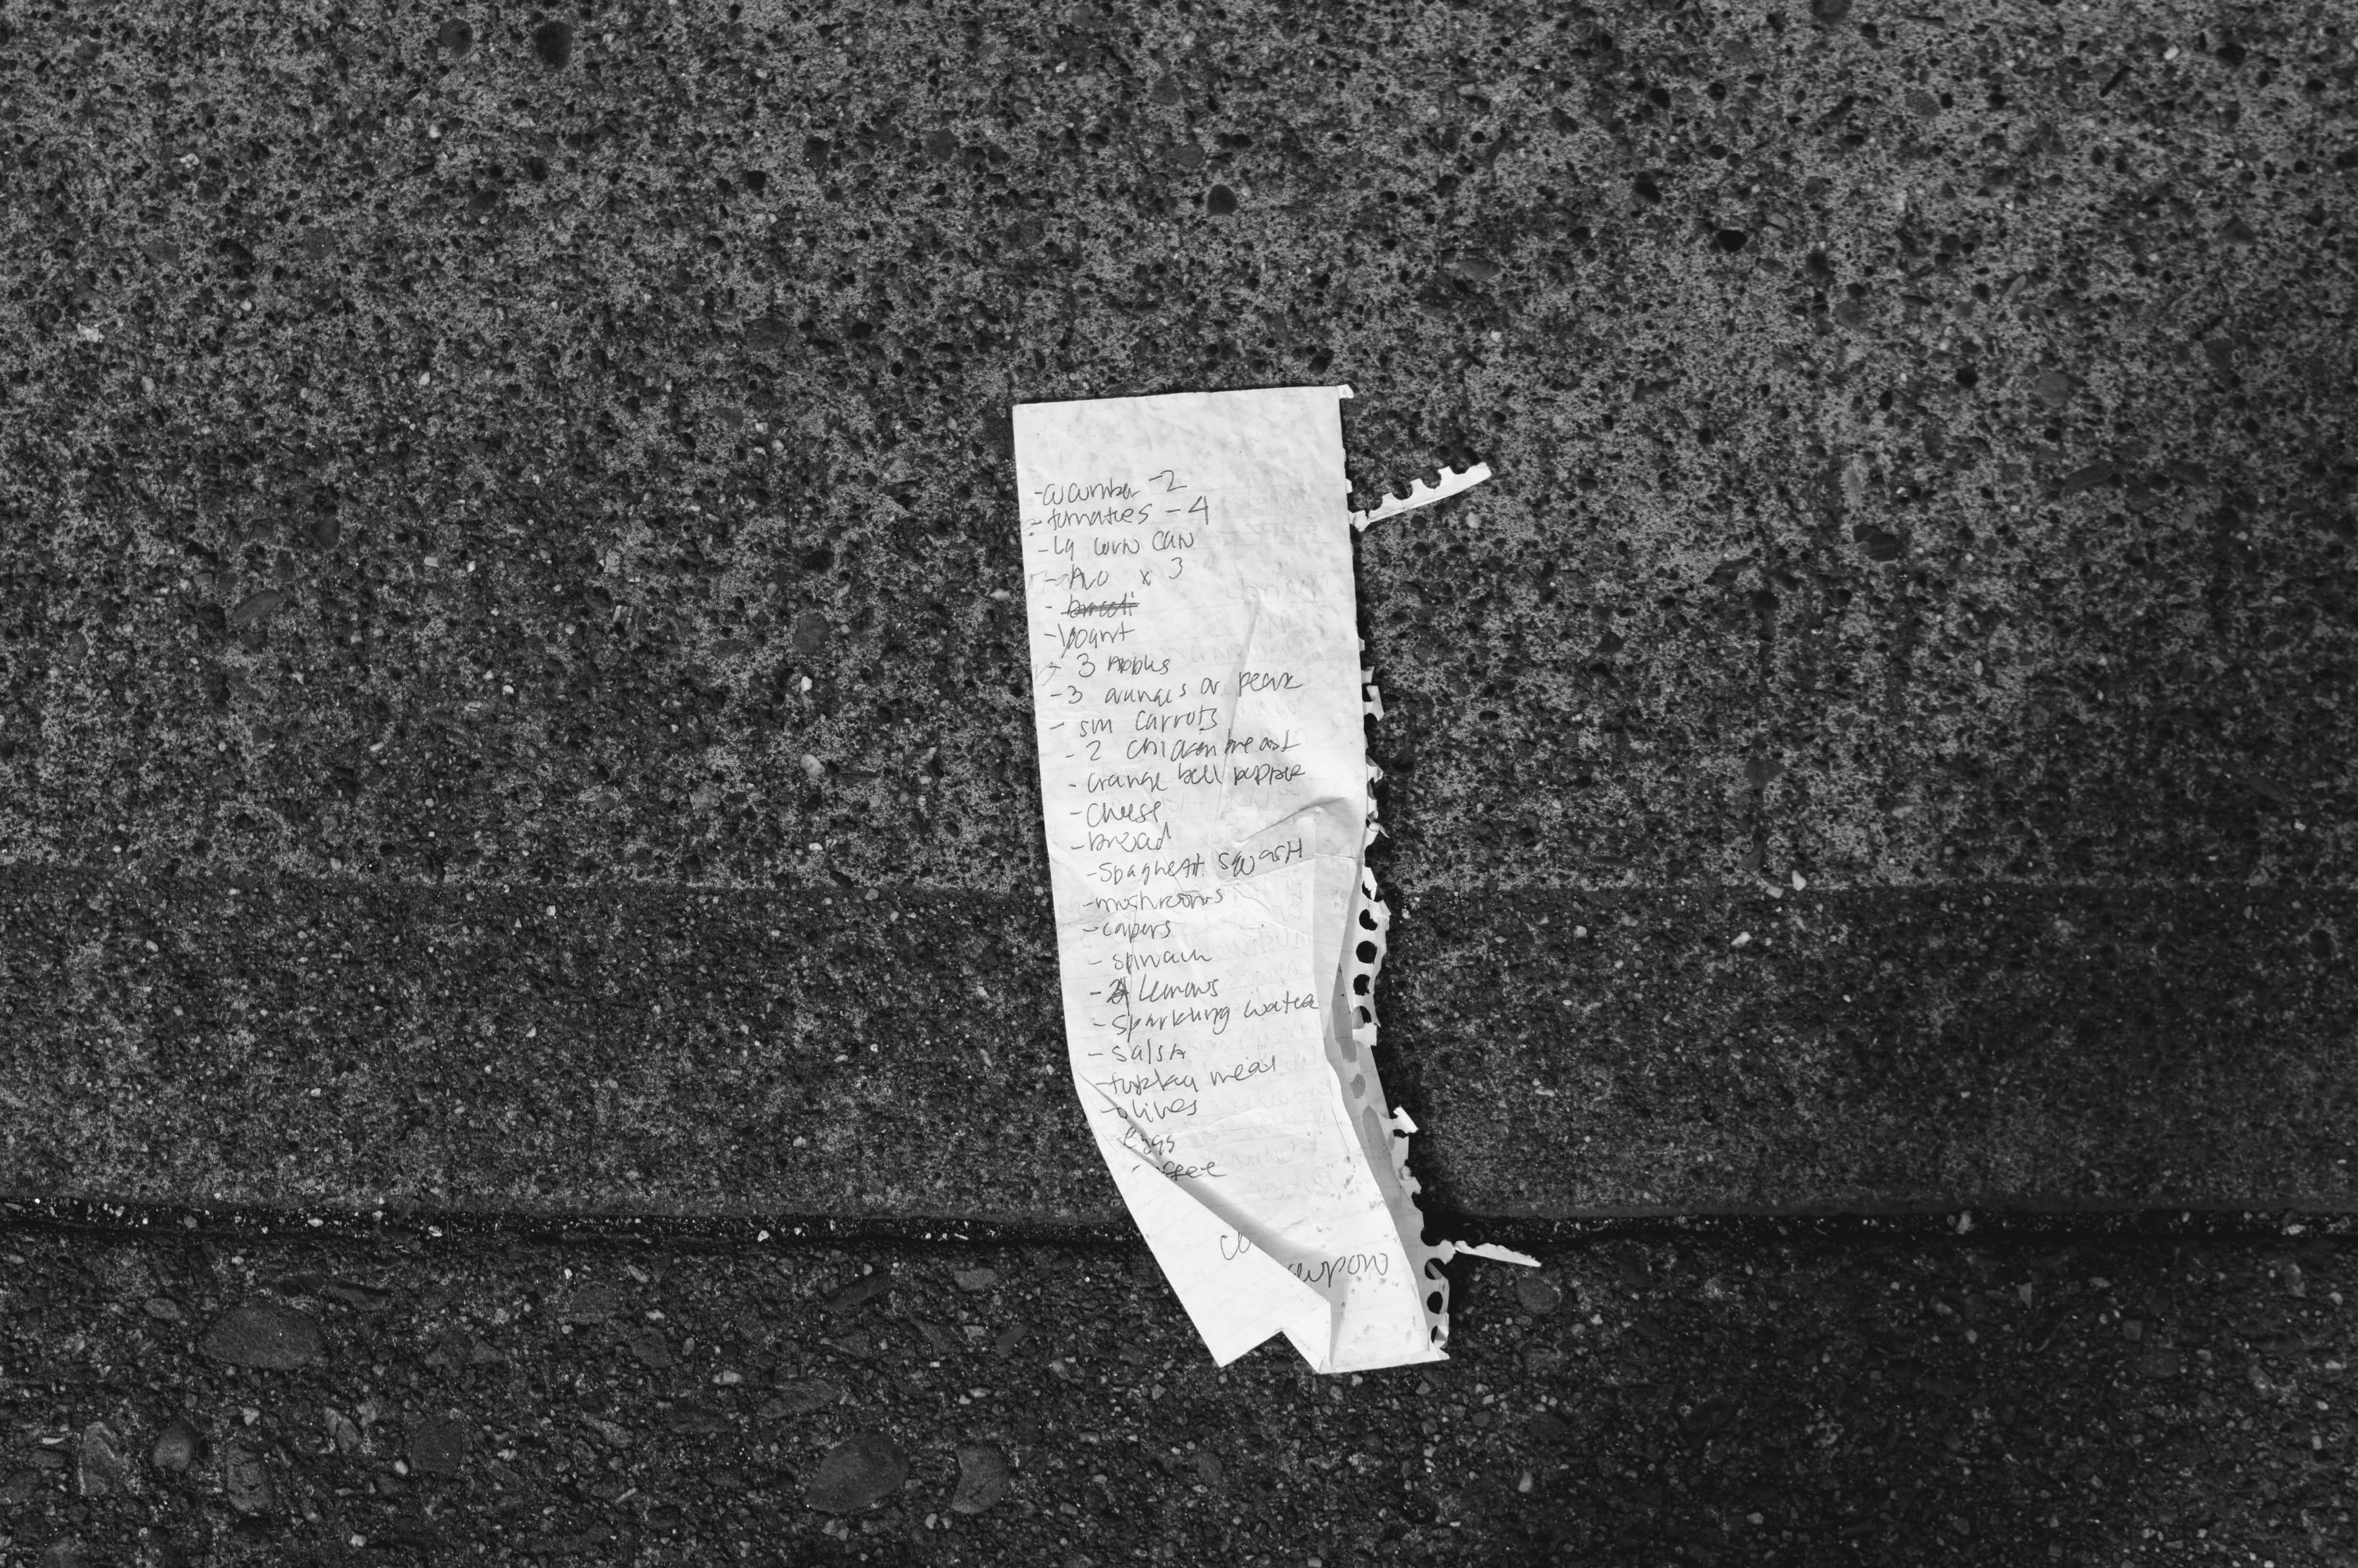 - cucumber - 2
- tomatoes - 4
- Lg corn can
- Avo x 3
- Yogurt
- 3 Apples
- 3 oranges or pears
- sm carrots
- 2 chicken breast
- orange bell pepper
- cheese
- bread
- spaghetti squash
- mushrooms
- capers
- spinach
- Lemons
- sparkling water
- salsa
- turkey meat
- olives
eggs